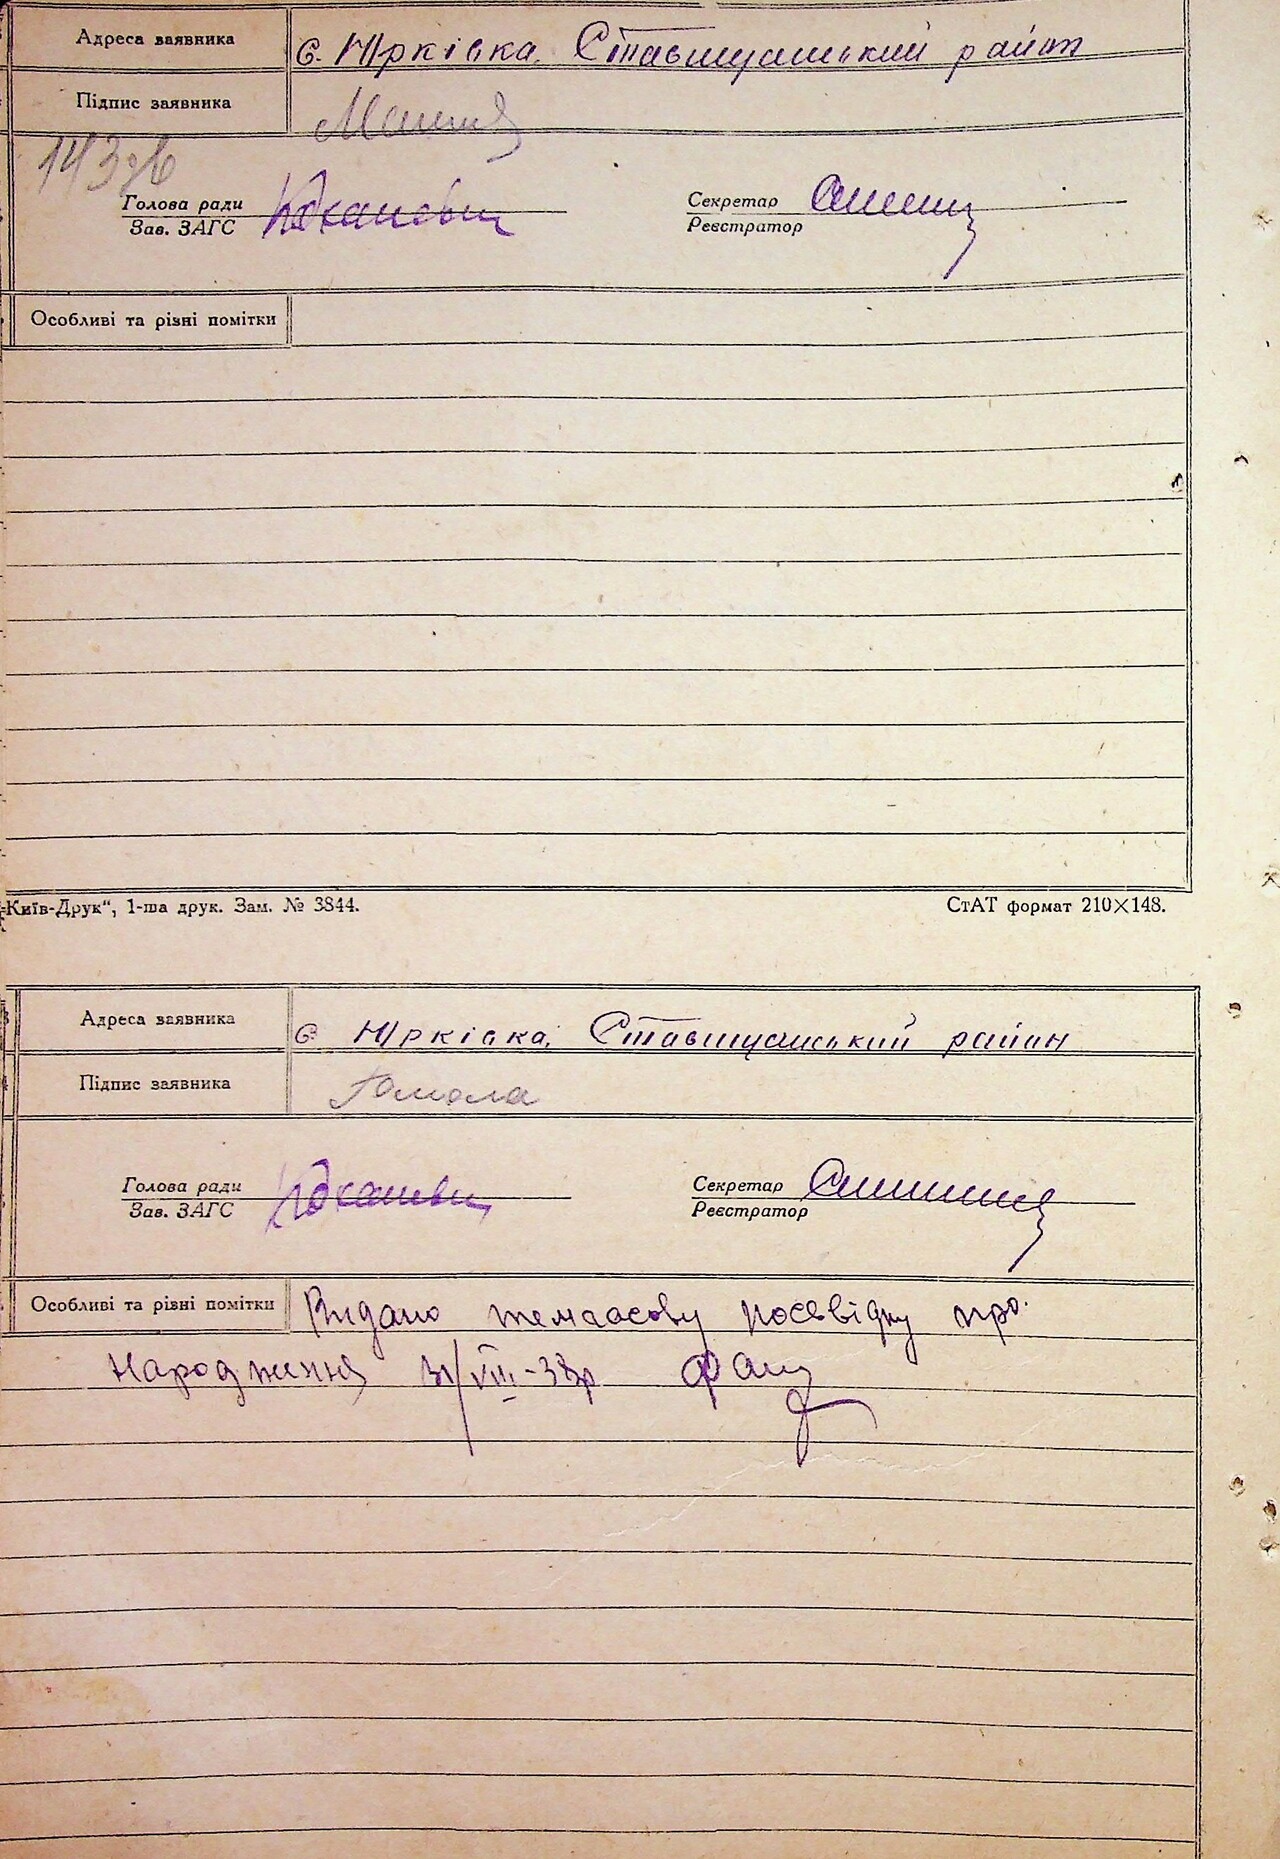 Адреса заявника с. Юрківка, Ставищанський район
Підпис заявника
Голова ради
Зав. ЗАГС
Секретар
Реєстратор
Особливі та різні помітки
Київ-Друк“, 1-ша друк. Зам. № 3844. СтАТ формат 210×148.
Адреса заявника с. Юрківка, Ставищанський район
Підпис заявника
Голова ради
Зав. ЗАГС
Секретар
Реєстратор
Особливі та різні помітки Видано темчасову посвідку про
народження 31/VIII-38р